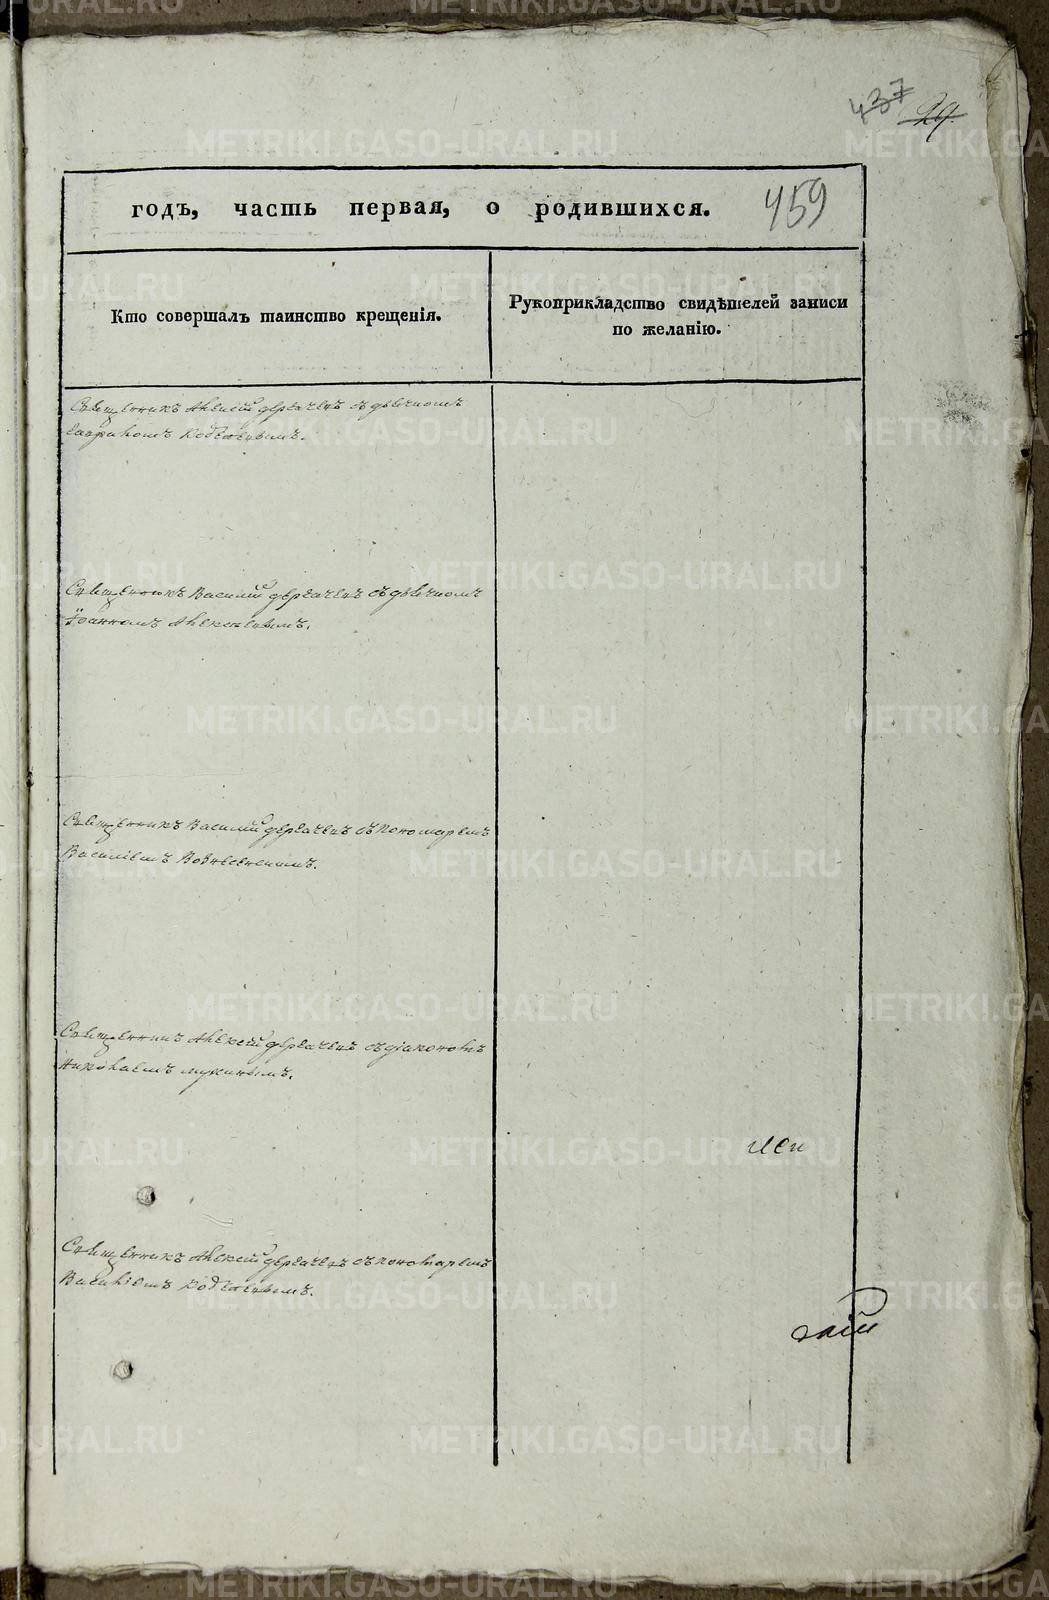 437 29
годъ, часть первая, о родившихся. 459
Кто совершалъ таинство крещенія.
Рукоприкладство свидѣтелей записи
по желанію.
Священникъ Алексій Дергачевъ съ дьячкомъ
Священникъ Василій Дергачевъ съ дьячкомъ
Іоанномъ Алексеевымъ.
Священникъ Василій Дергачевъ съ пономаремъ
Василіемъ Вознесенскимъ.
Священникъ Алексій Дергачевъ съ діакономъ
Николаемъ Мукинымъ.
Священникъ Алексій Дергачевъ съ пономаремъ
Василіемъ
METRIKI.GASO-URAL.RU